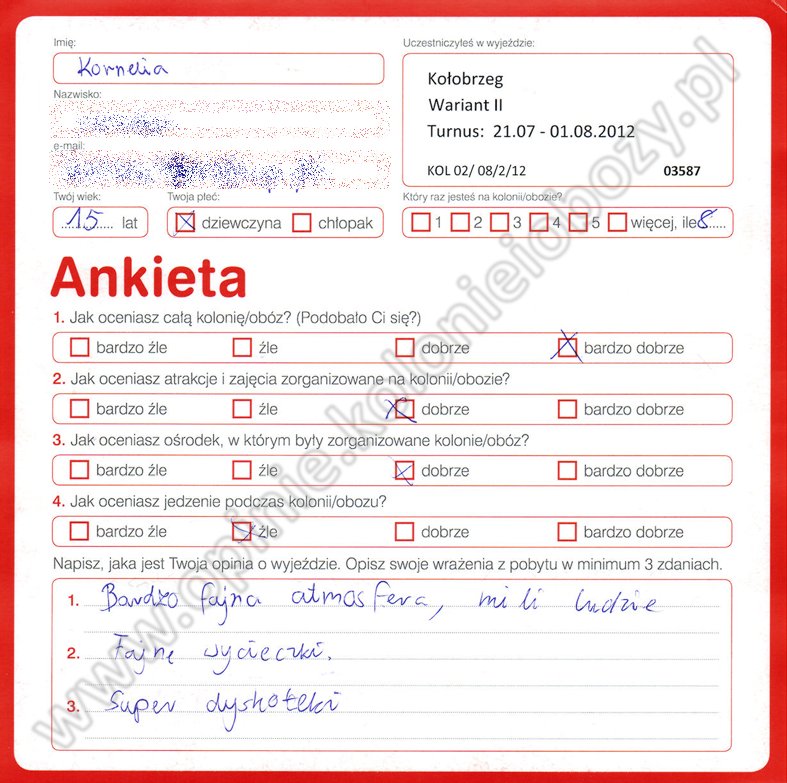 Imię:
Kornelia
Uczestniczyłeś w wyjeździe:
Kołobrzeg
Wariant II
Turnus: 21.07 - 01.08.2012
KOL 02/ 08/2/12 03587
Nazwisko:
e-mail:
Twój wiek:
15 lat
Twoja płeć:
dziewczyna chłopak
Który raz jesteś na kolonii/obozie?
1 2 3 4 5 więcej, ile 8
Ankieta
1. Jak oceniasz całą kolonię/obóz? (Podobało Ci się?)
bardzo źle źle dobrze bardzo dobrze
2. Jak oceniasz atrakcje i zajęcia zorganizowane na kolonii/obozie?
bardzo źle źle dobrze bardzo dobrze
3. Jak oceniasz ośrodek, w którym były zorganizowane kolonie/obóz?
bardzo źle źle dobrze bardzo dobrze
4. Jak oceniasz jedzenie podczas kolonii/obozu?
bardzo źle źle dobrze bardzo dobrze
Napisz, jaka jest Twoja opinia o wyjeździe. Opisz swoje wrażenia z pobytu w minimum 3 zdaniach.
1. Bardzo fajna atmosfera, mili ludzie
2. Fajne wycieczki.
3. Super dyskoteki
www.opinie.kolonieiobozy.pl